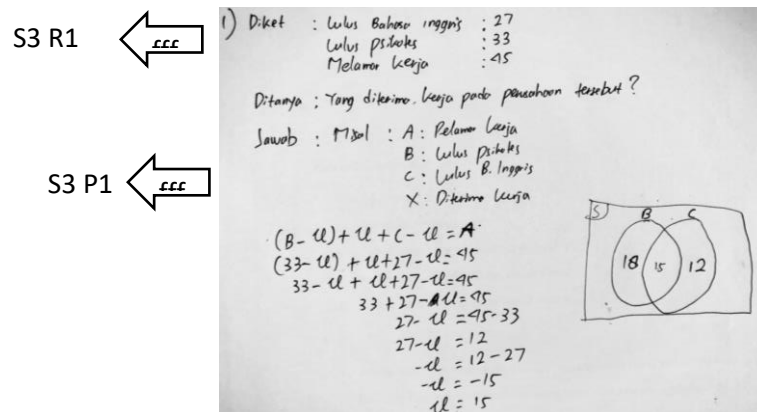 S3 R1
1) Diket : Lulus Bahasa inggris : 27
Lulus psikotes : 33
Melamar kerja : 45
Ditanya : Yang diterima kerja pada perusahaan tersebut ?
Jawab : Misal : A : Pelamar kerja
S3 P1
B : Lulus psikotes
C : Lulus B. Inggris
X : Diterima kerja
(B - x) + x + C - x = A
(33 - x) + x + 27 - x = 45
33 - x + x + 27 - x = 45
33 + 27 - x = 45
27 - x = 45 - 33
27 - x = 12
-x = 12 - 27
-x = -15
x = 15
S B C
18 15 12